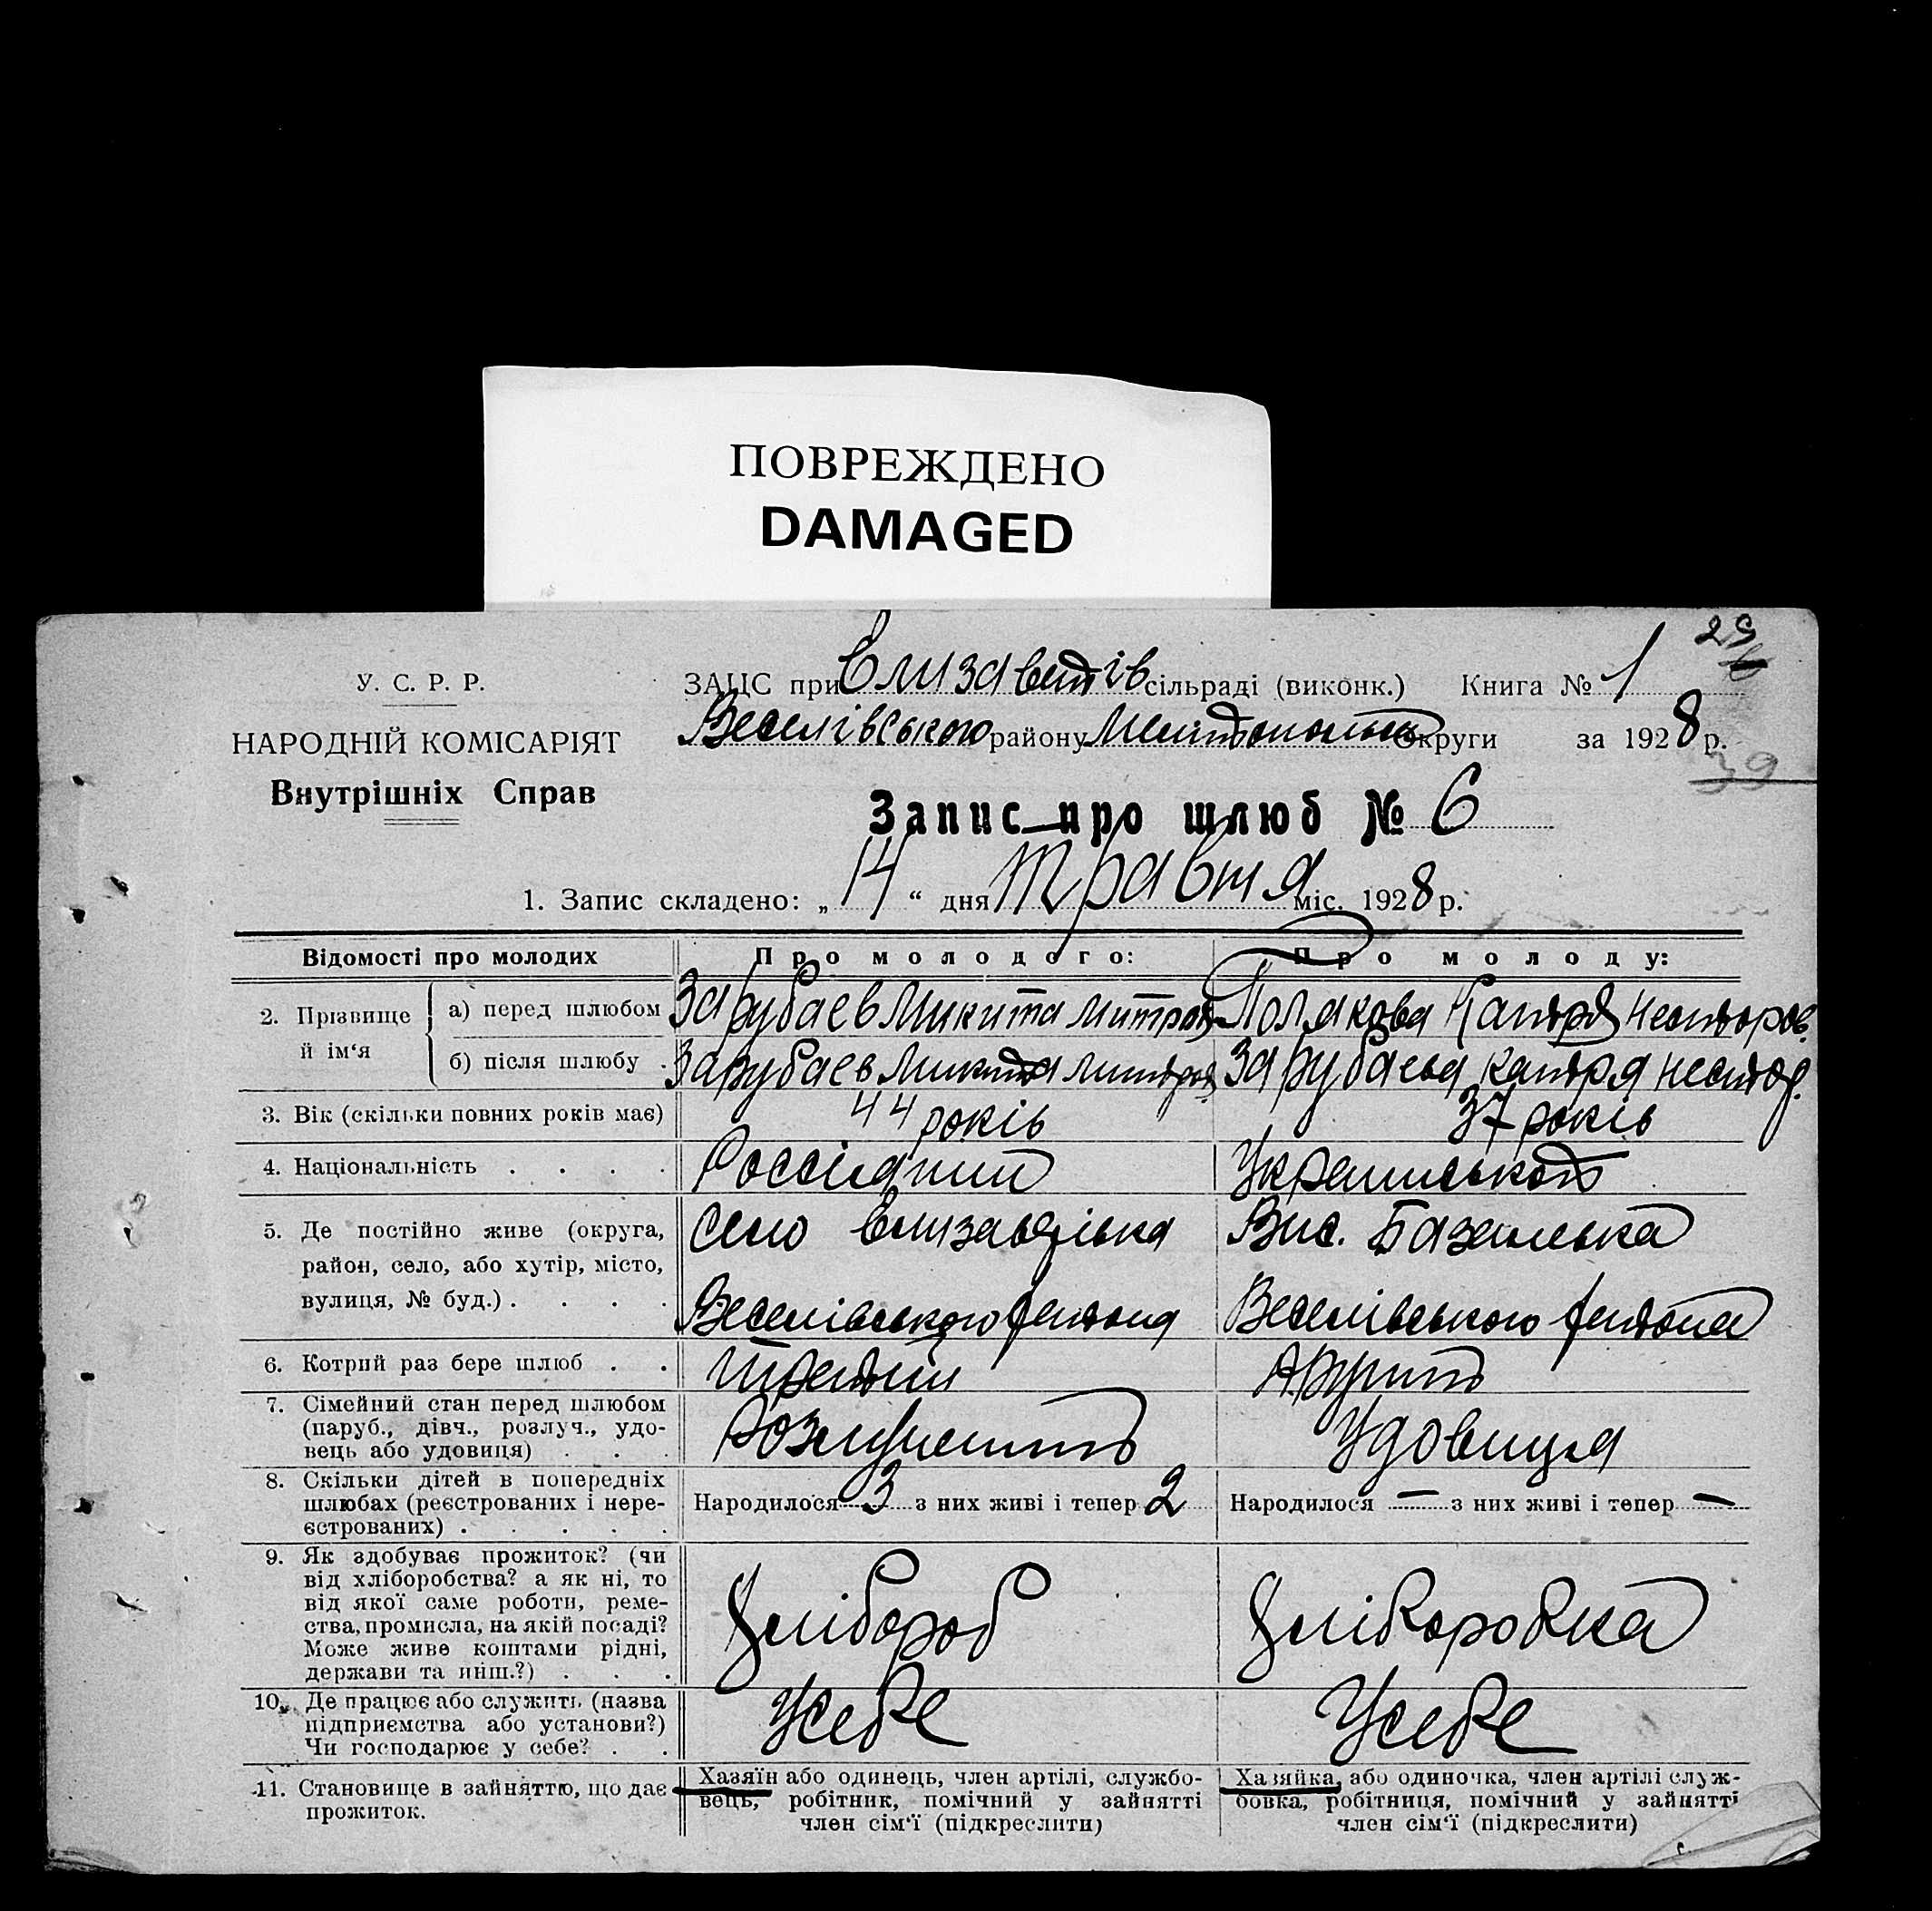 ПОВРЕЖДЕНО
DAMAGED
29
У. С. Р. Р.
НАРОДНІЙ КОМІСАРІЯТ
Внутрішніх Справ
ЗАЦС при Єлизаветів сільраді (виконк.) Книга № 1
Веселівського району Мелітопольськ округи за 1928 р.
39
Запис про шлюб № 6
1. Запис складено: „ 14 “ дня травня міс. 1928 р.
Відомості про молодих Про молодого: Про молоду:
2. Прізвище й ім‘я
а) перед шлюбом Зарубаєв Микита Митроф Полякова Катря Несторов.
б) після шлюбу . Зарубаєв Микита Митроф Зарубаєва Катря Нестор.
3. Вік (скільки повних років має) 44 років 37 років
4. Національність . . . . Українськ
5. Де постійно живе (округа, село Єлизаветівка Вис.
район, село, або хутір, місто,
вулиця, № буд.) . . . . Веселівського району Веселівського району
6. Котрий раз бере шлюб . . третій
7. Сімейний стан перед шлюбом
(паруб., дівч., розлуч., удо-
вець або удовиця) . . . Удовиця
8. Скільки дітей в попередніх
шлюбах (реєстрованих і нере-
єстрованих) . . . . .
Народилося 3 з них живі і тепер 2 Народилося — з них живі і тепер —
9. Як здобуває прожиток? (чи
від хліборобства? а як ні, то
від якої саме роботи, реме-
ства, промисла, на якій посаді?
Може живе коштами рідні,
держави та инш.?) . . .
Хлібороб Хліборобка
10. Де працює або служить (назва
підприємства або установи?)
Чи господарює у себе? . .
У себе У себе
11. Становище в зайняттю, що дає
прожиток.
Хазяїн або одинець, член артілі, службо-
вець, робітник, помічний у зайнятті
член сім‘ї (підкреслити)
Хазяйка, або одиночка, член артілі служ-
бовка, робітниця, помічний у зайнятті
член сім‘ї (підкреслити)